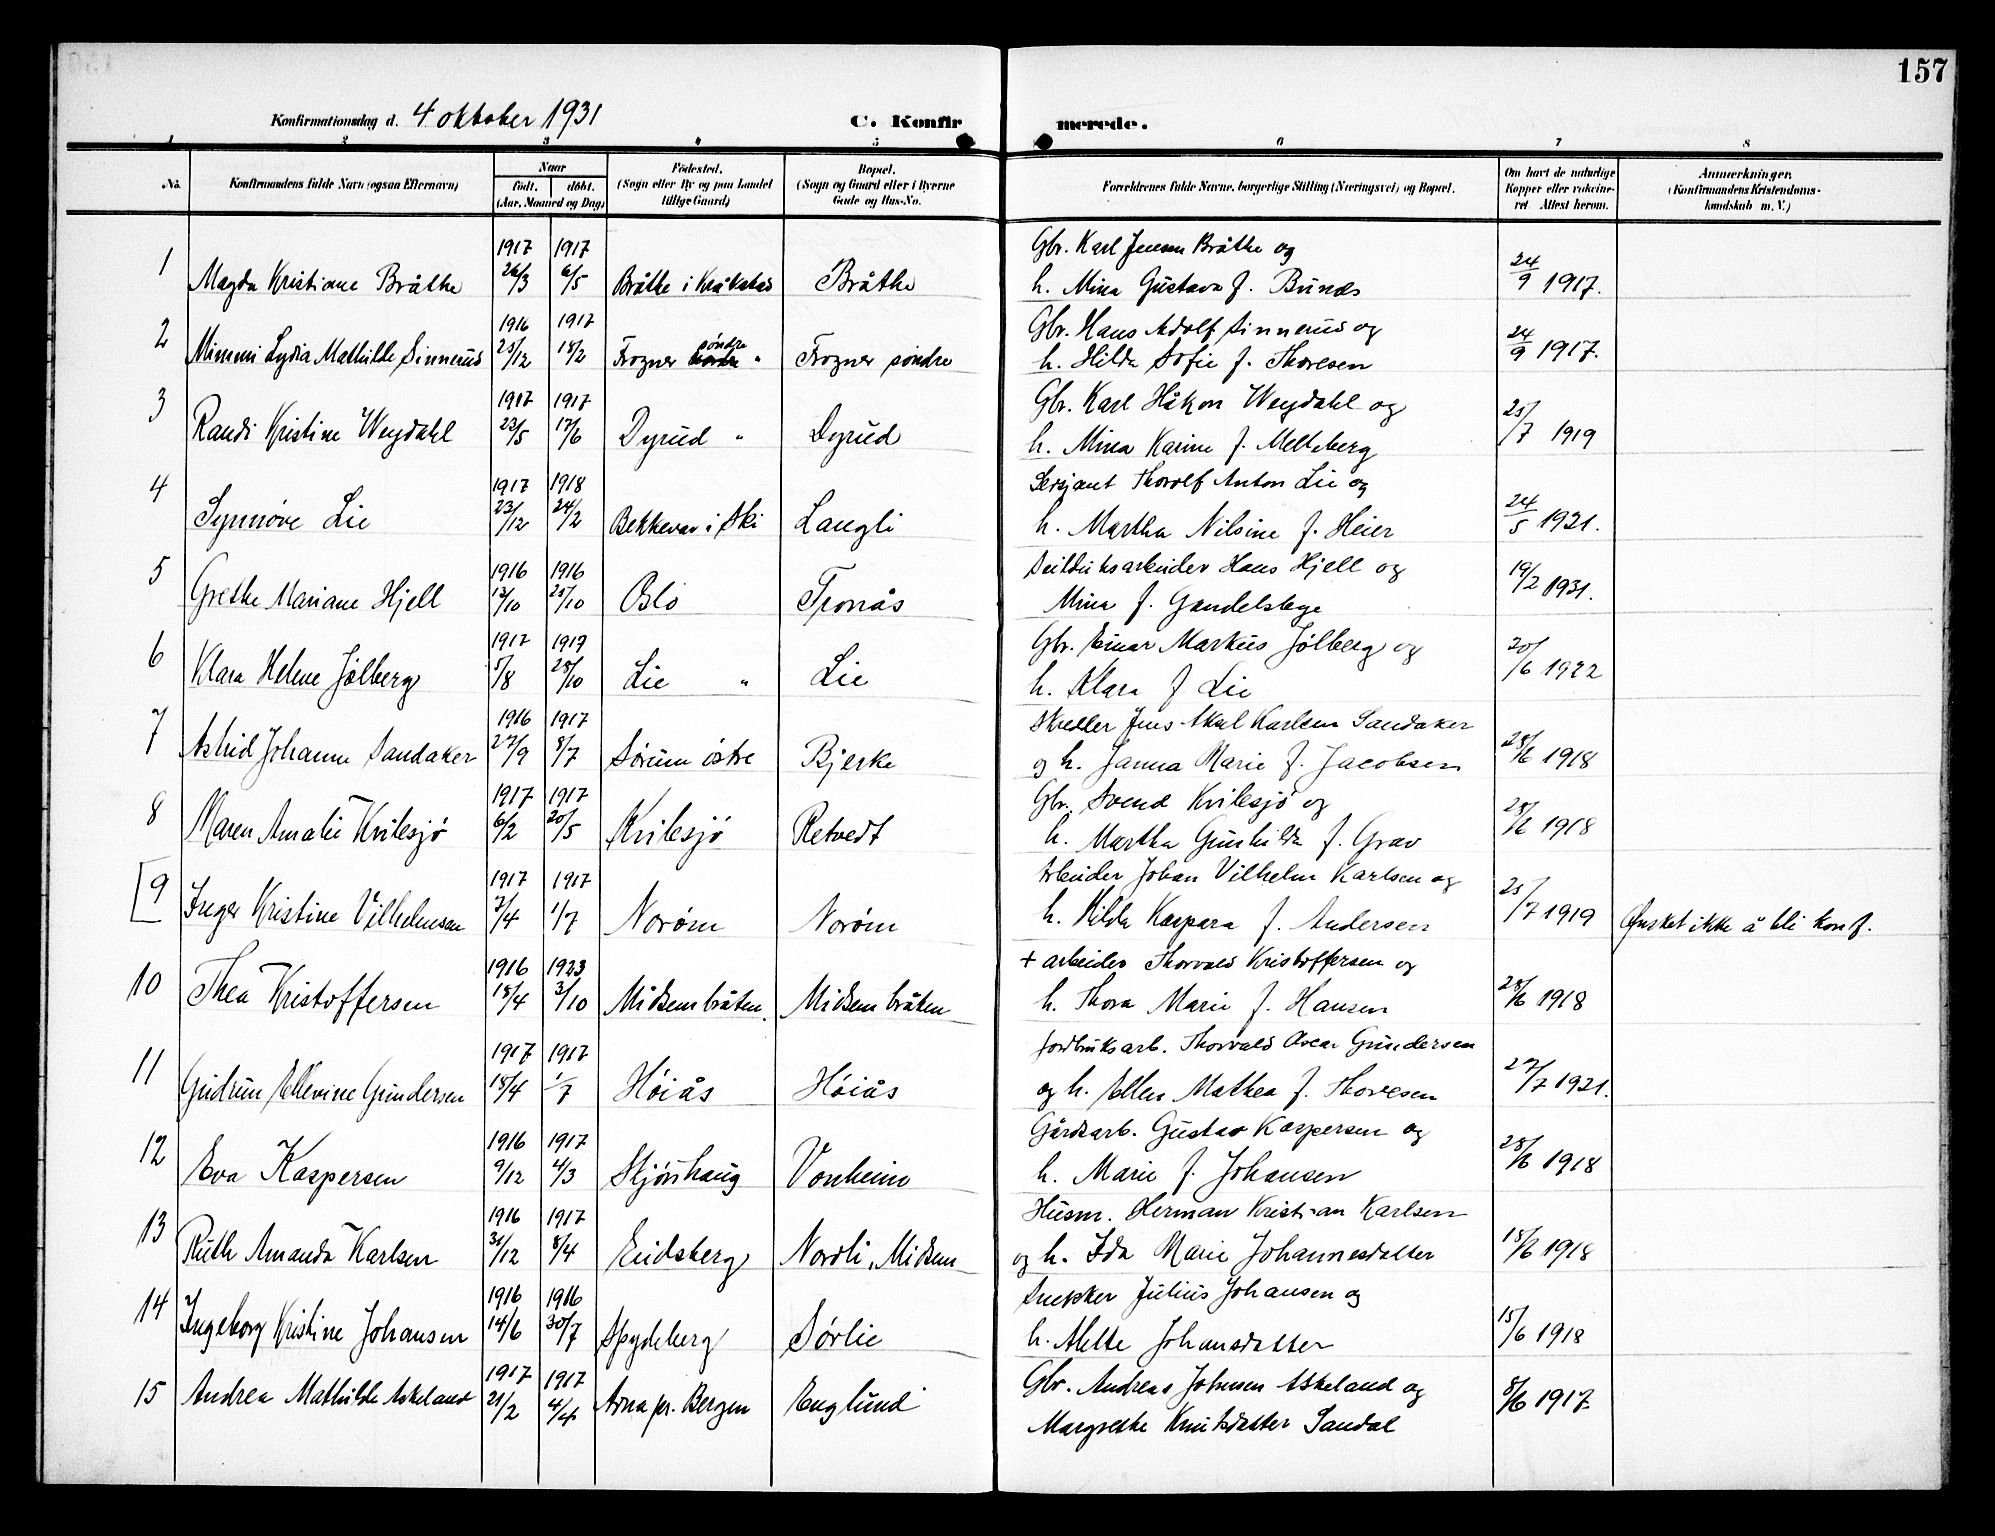 157
Konfirmationsdag d. 4 oktober 1931 C. Konfirmerede.
1 2 3 4 5 6 7 8
No. Konfirmandens fulde Navn (ogsaa Efternavn) Naar født. døbt. (Aar, Maaned og Dag) Fødested. (Sogn eller By og paa Landet tillige Gaard) Bopæl. (Sogn og Gaard eller i Byerne Gade og Hus-No. Forældrenes fulde Navne, borgerlige Stilling (Næringsvei) og Bopæl. Om havt de naturlige Kopper eller vakcineret Attest herom. Anmærkninger. (Konfirmandens Kristendomskundskab m. V.)
1 1917 1917 Gbr. Karl Jensen Bråthe og
Magda Kristiane Bråthe 26/3 6/5 Bråthe i Kråkstad Bråthe h. Mina Gustava f. Bunæs 24/9 1917.
2 1916 1917 Gbr. Hans Adolf Sinnerud og
Mimmi Lydia Mathilde Sinnerud 25/12 18/2 Frogner søndre " Frogner søndre h. Hilda Sofie f. Thoresen 24/9 1917.
3 1917 1917 Gbr. Karl Håkon Weydahl og
Randi Kristine Weydahl 23/5 17/6 Dyrud " Dyrud h. Mina Karine f. Melleberg 25/7 1919
4 1917 1918 Sersjant Thorolf Anton Lie og
Synnøve Lie 23/12 24/2 Bekkevar i Ski Langli h. Martha Nilsine f. Heier 24/5 1921.
5 1916 1916 Hans Hjell og
Grethe Mariane Hjell 13/10 25/10 Oslo Tronås Mina f. 19/2 1931.
6 1917 1917 Gbr. Einar Markus Jølberg og
Klara Helene Jølberg 5/8 28/10 Lie " Lie h. Klara f Lie 20/6 1922
7 1916 1917 Jens Aksel Karlsen Sandaker
Astrid Johanne Sandaker 27/9 8/7 Sørum østre Bjerke og h. Janna Marie f. Jacobsen 28/6 1918
8 1917 1917 Gbr. Svend Kvilesjø og
Maren Amalie Kvilesjø 6/2 20/5 Kvilesjø Retvedt h. Martha Gunhilda f. Grav 28/6 1918
[9 1917 1917 Arbeider Johan Vilhelm Karlsen og
Inger Kristine Vilhelmsen 7/4 1/7 Norøm Norøm h. Hilda Kaspara f. Andersen 25/7 1919 Ønsket ikke å bli konf.
10 1916 1923 + arbeider Thorvald Kristoffersen og
Thea Kristoffersen 18/4 3/10 Midsembråten. Midsembråten h. Thora Marie f. Hansen 28/6 1918
11 1917 1917 Jordbruksarb. Thorvald Oscar Gundersen
Gudrun Ellevine Gundersen 18/4 1/7 Høiås Høiås og h. Ellen Mathea f. Thoresen 27/7 1921.
12 1916 1917 Gårdsarb. Gustav Kaspersen og
Eva Kaspersen 9/12 4/3 Skjønhaug Vonheim h. Marie f. Johansen 28/6 1918
13 1916 1917 Husm. Herman Kristian Karlsen
Ruth Amanda Karlsen 31/12 8/4 Eidsberg Nordli, Midsem og h. Ida Marie Johannesdatter 18/6 1918
14 1916 1916 Snekker Julius Johansen og
Ingeborg Kristine Johansen 14/6 30/7 Spydeberg Sørlie h. Alette Johansdatter 15/6 1918
15 1917 1917 Gbr. Andreas Johnsen Askeland og
Andrea Mathilde Askeland 21/2 4/4 Arna pr. Bergen Englund Margrethe Knutsdatter Sandal 8/6 1917.